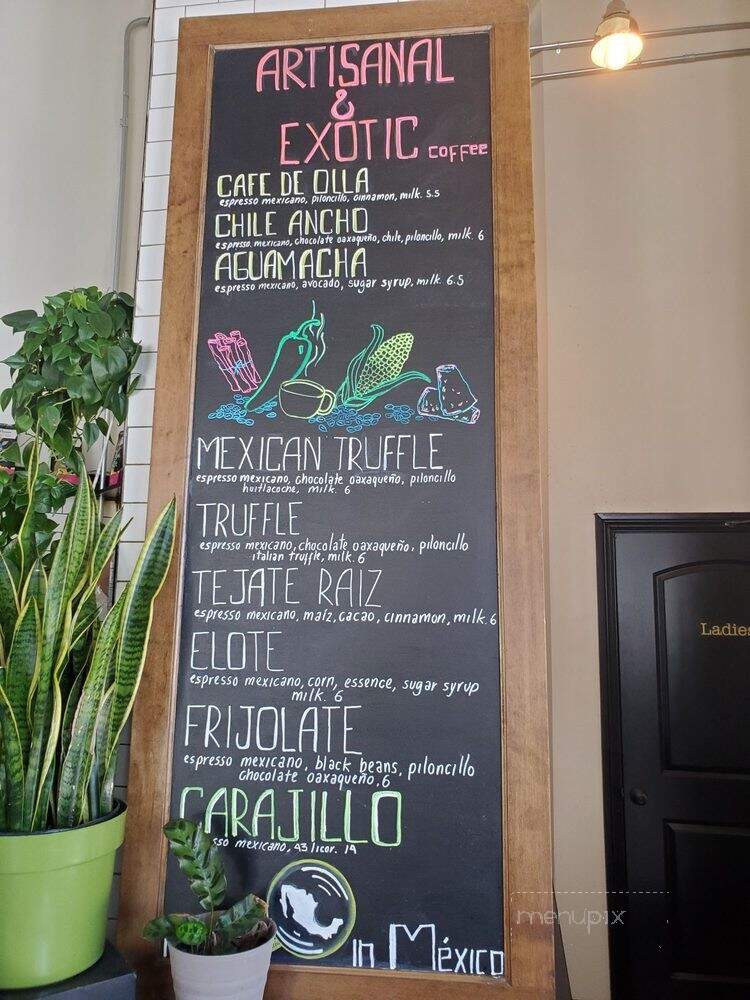 ARTISANAL
&
EXOTIC COFFEE
CAFE DE OLLA
espresso mexicano, piloncillo, cinnamon, milk. 5.5
CHILE ANCHO
espresso mexicano, chocolate oaxaqueño, chile, piloncillo, milk. 6
AGUAMACHA
espresso mexicano, avocado, sugar syrup, milk. 6.5
MEXICAN TRUFFLE
espresso mexicano, chocolate oaxaqueño, piloncillo
huitlacoche, milk. 6
TRUFFLE
espresso mexicano, chocolate oaxaqueño, piloncillo
italian truffle, milk. 6
TEJATE RAIZ
espresso mexicano, maíz, cacao, cinnamon, milk. 6
ELOTE
espresso mexicano, corn, essence, sugar syrup
milk. 6
FRIJOLATE
espresso mexicano, black beans, piloncillo
chocolate oaxaqueño, 6
CARAJILLO
sso mexicano, 43 licor. 14
in México
Ladies
menupix